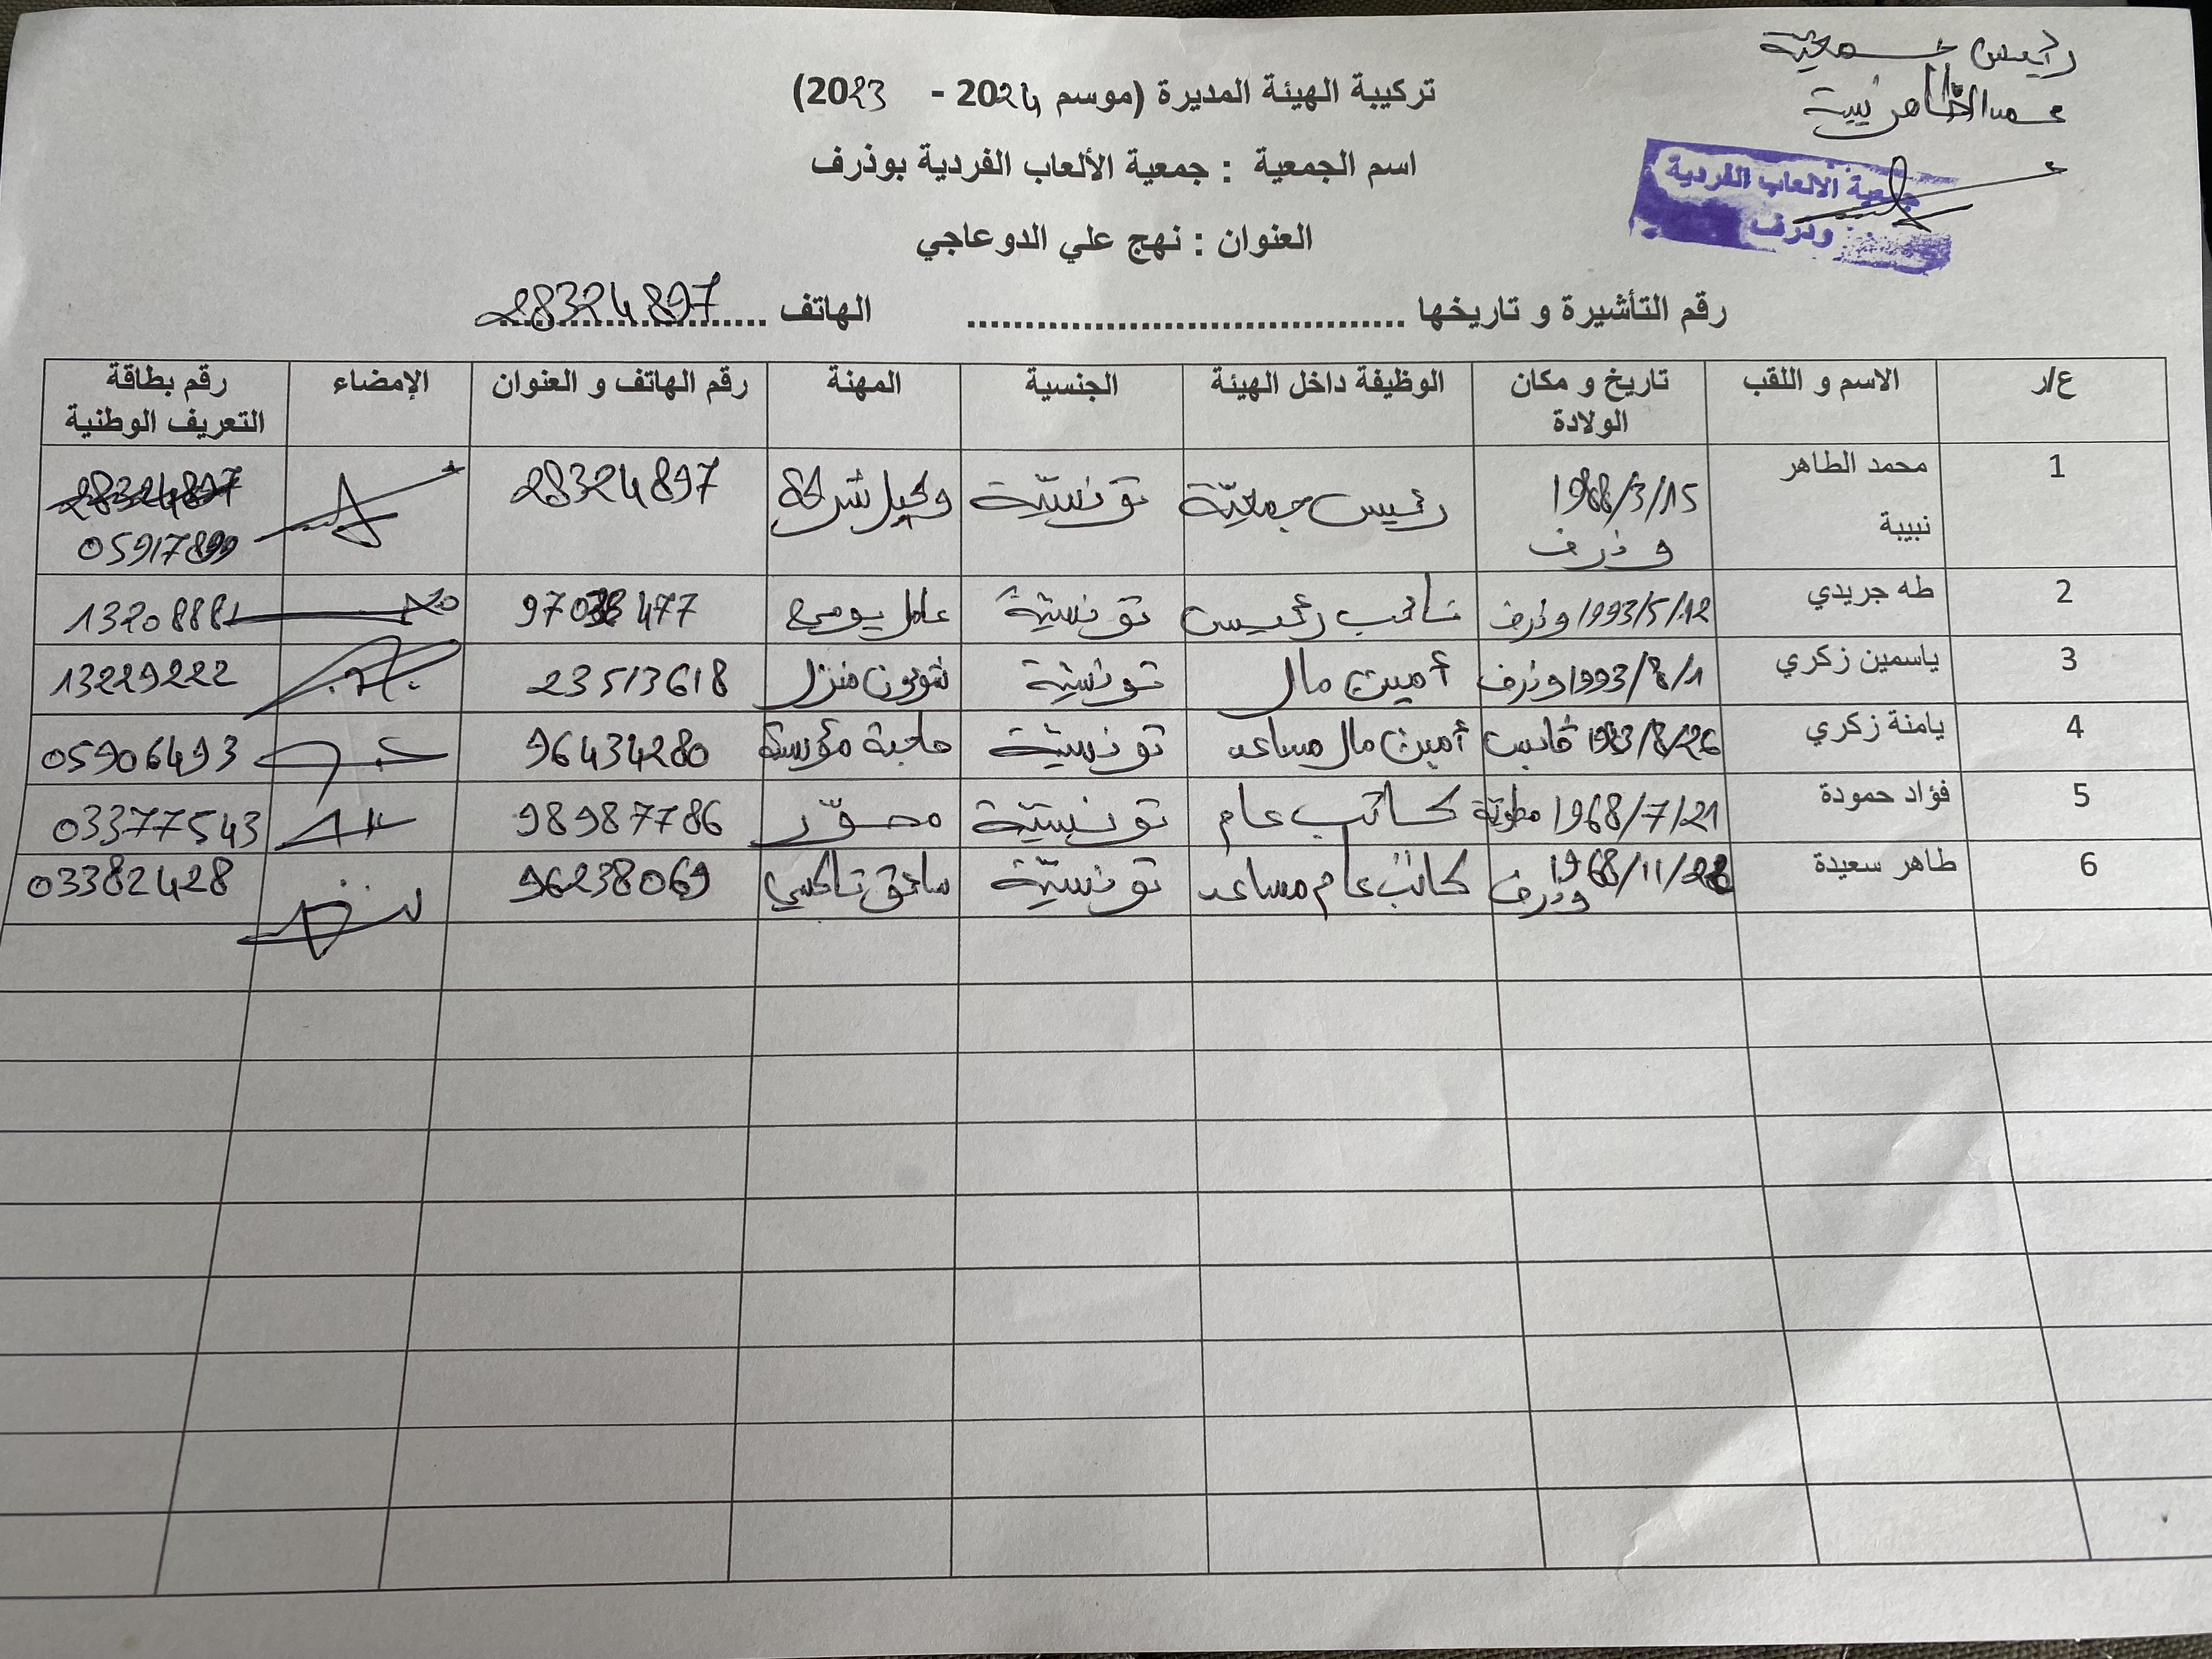 رئيس جمعية
محمد الطاهر نبيبة
جمعية الالعاب الفردية
وذرف
تركيبة الهيئة المديرة (موسم 2024 - 2023)
اسم الجمعية : جمعية الألعاب الفردية بوذرف
العنوان : نهج علي الدوعاجي
رقم التأشيرة و تاريخها ...................................... الهاتف 28324897
ع/ر الاسم و اللقب تاريخ و مكان الولادة الوظيفة داخل الهيئة الجنسية المهنة رقم الهاتف و العنوان الإمضاء رقم بطاقة التعريف الوطنية
1 محمد الطاهر نبيبة 1988/3/15 وذرف رئيس جمعيّة تونسيّة وكيل شركة 28324897 28324897 05917899
2 طه جريدي 1993/5/12 وذرف نائب رئيس تونسيّة عامل يومي 477 13208881
3 ياسمين زكري 1993/8/1 وذرف أمين مال تونسيّة شؤون منزل 23513618 13229222
4 يامنة زكري 1983/8/26 قابس أمين مال مساعد تونسيّة صاحبة مؤسسة 96434280 05906493
5 فؤاد حمودة 1968/7/21 مطويّة كاتب عام تونسيّة 98987786 03377543
6 طاهر سعيدة 1968/11/28 وذرف كاتب عام مساعد تونسيّة سائق تاكسي 96238069 03382428